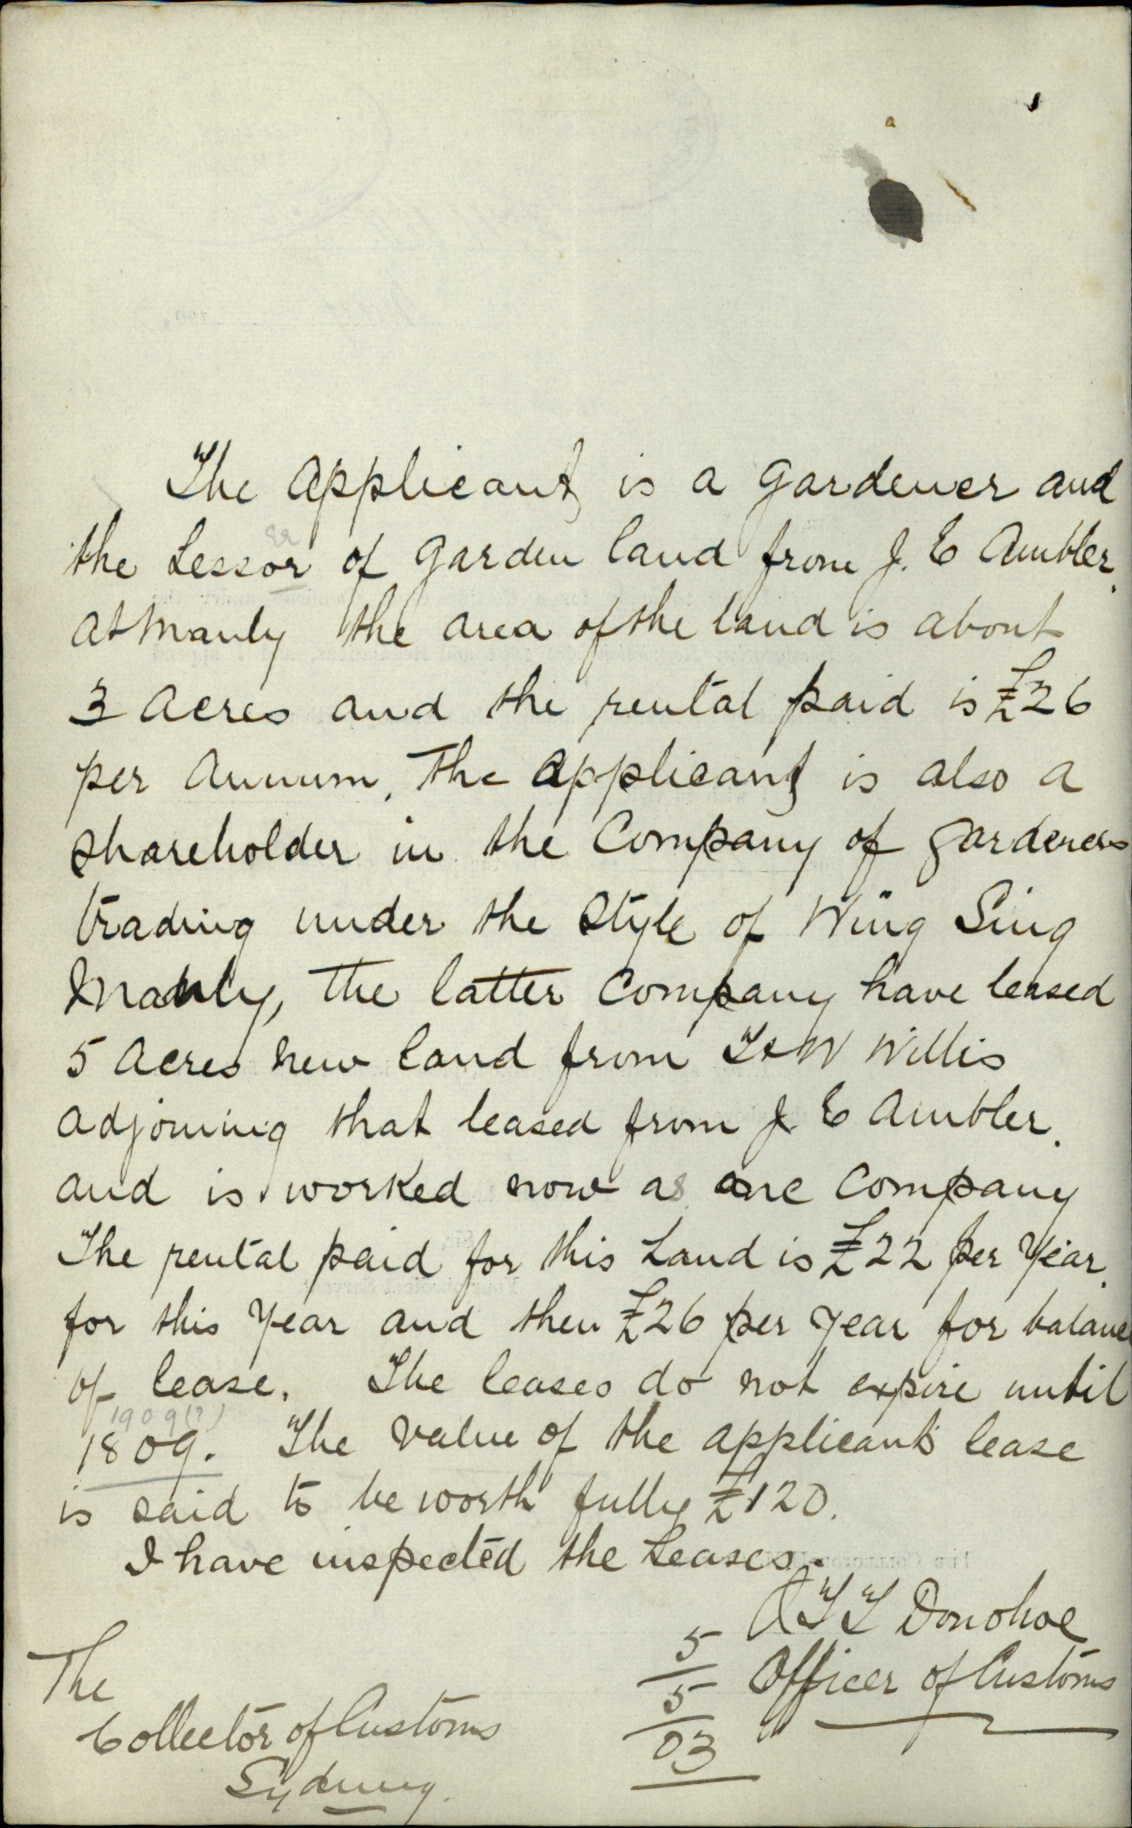 The Applicant is a gardener and
ee
the Lessor of garden land from J. E Ambler.
at Manly the area of the land is about
3 acres and the rental paid is £26
per Annum. The applicant is also a
shareholder in the Company of gardeners
trading under the style of Wing Sing
Manly, The latter Company have leased
5 acres new land from T & W Willis
adjoining that leased from J E Ambler.
and is worked now as one Company
The rental paid for this Land is £22 per Year.
for this Year and then £26 per year for balance
of lease. The leases do not expire until
1909(?)
1809. The value of the applicants lease
is said to be worth fully £120.
I have inspected the Leases.
T T Donohoe
Officer of Customs
5
5
03
The
Collector of Customs
Sydney.